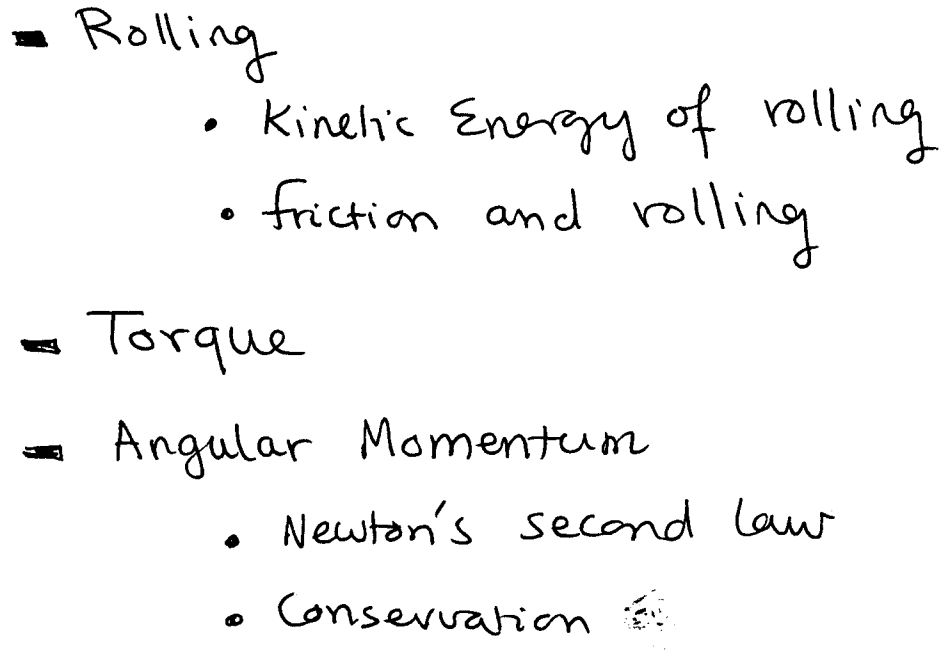 - Rolling
• Kinetic Energy of rolling
• friction and rolling
- Torque
- Angular Momentum
• Newton's second law
• Conservation